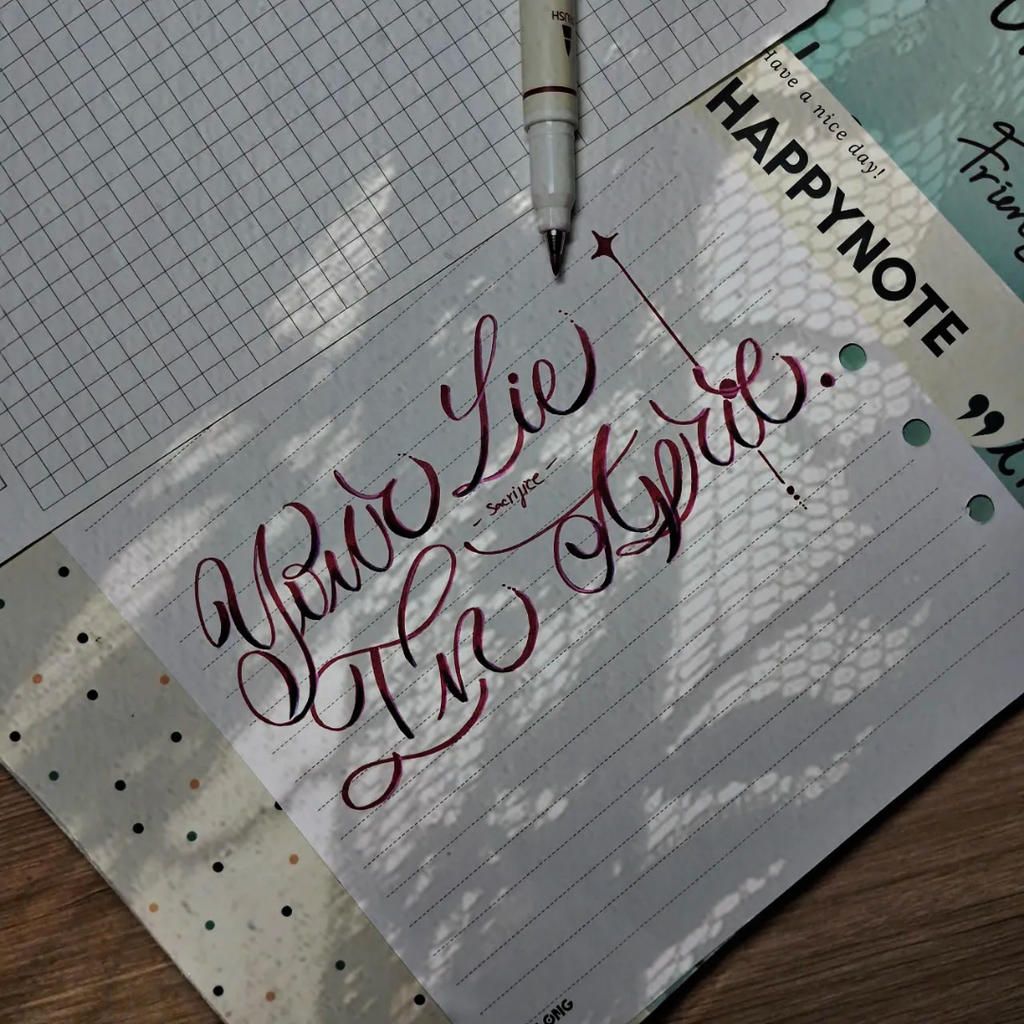 USH
Have a nice day!
HAPPYNOTE
”
Your Lie
- Sacrifice -
In April.